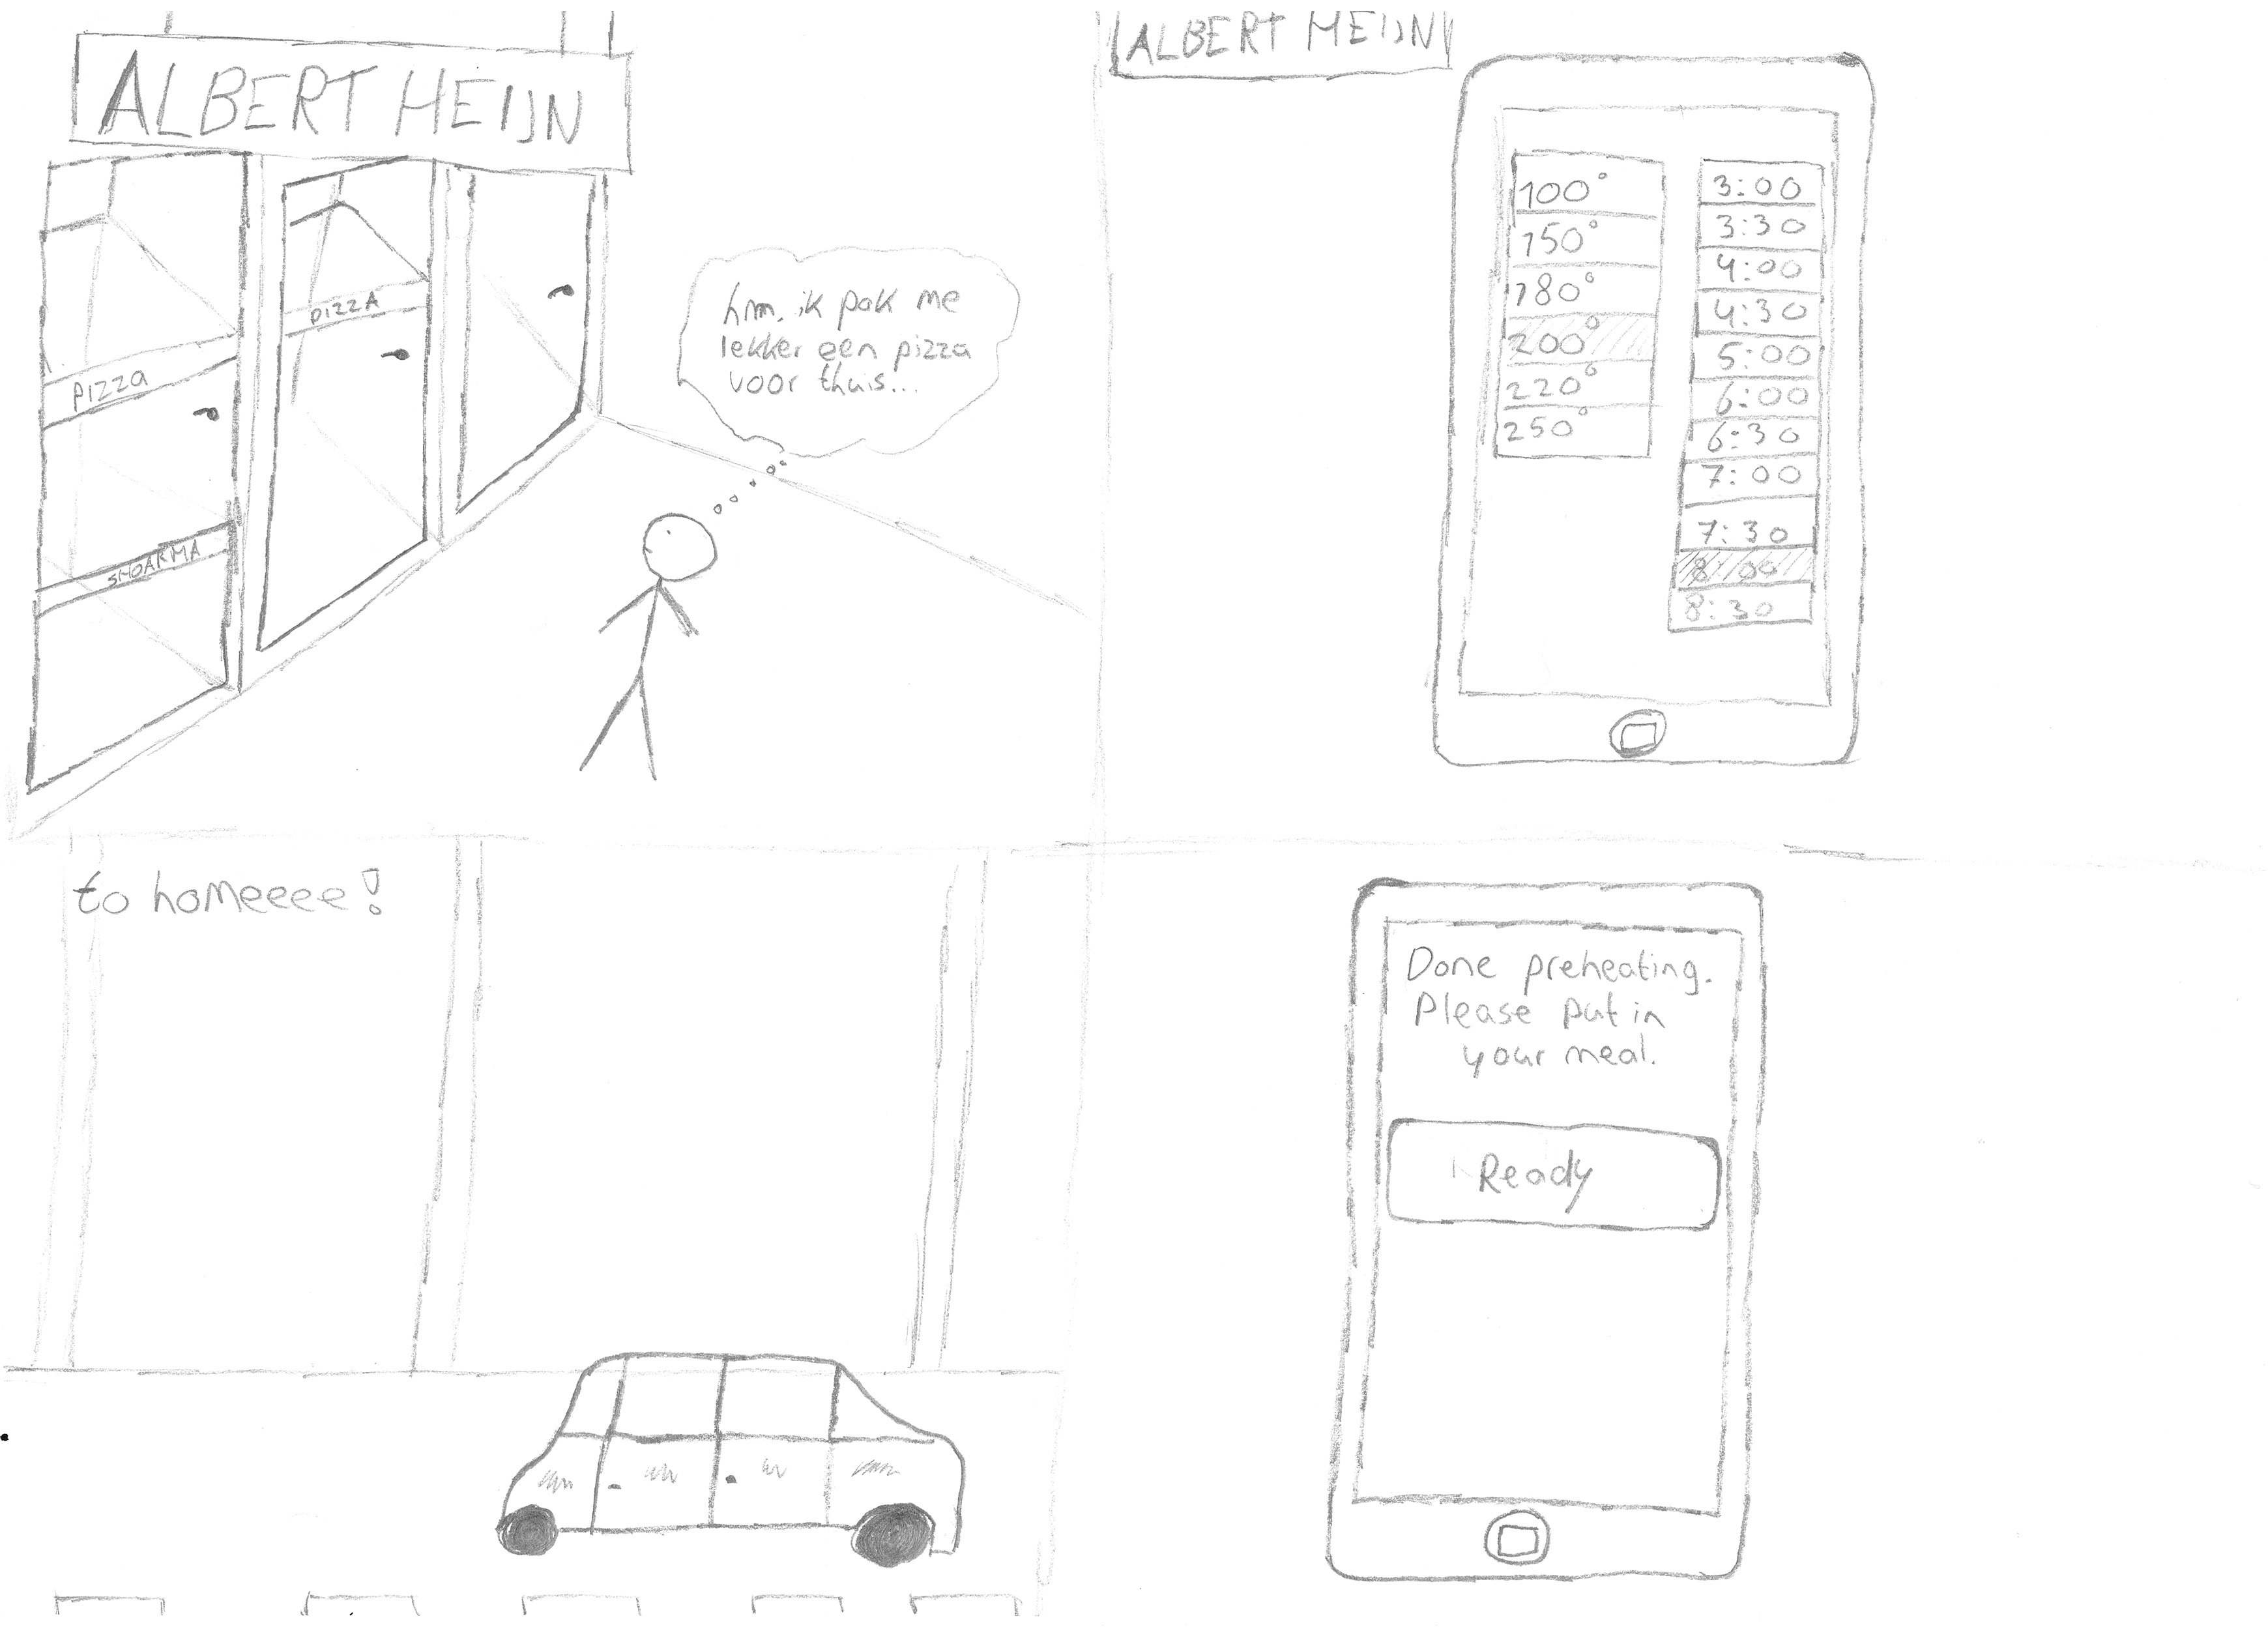 ALBERT HEIJN
PIZZA
pizza
SHOARMA
hm. ik pak me
lekker een pizza
voor thuis...
ALBERT HEIJN
100°
150°
180°
200°
220°
250°
3:00
3:30
4:00
4:30
5:00
6:00
6:30
7:00
7:30
8:00
8:30
to homeeee!
Done preheating.
Please put in
your meal.
Ready